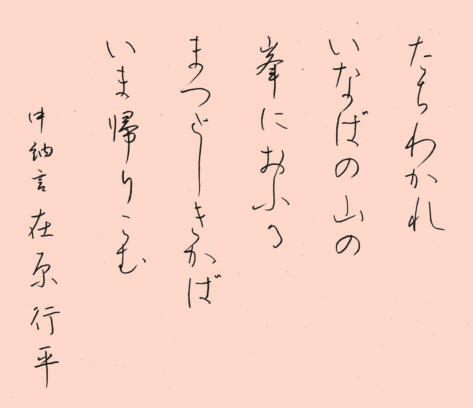 たちわかれ
いなばの山の
峯におふる
まつとしきかば
いま帰りこむ
中納言 在原行平